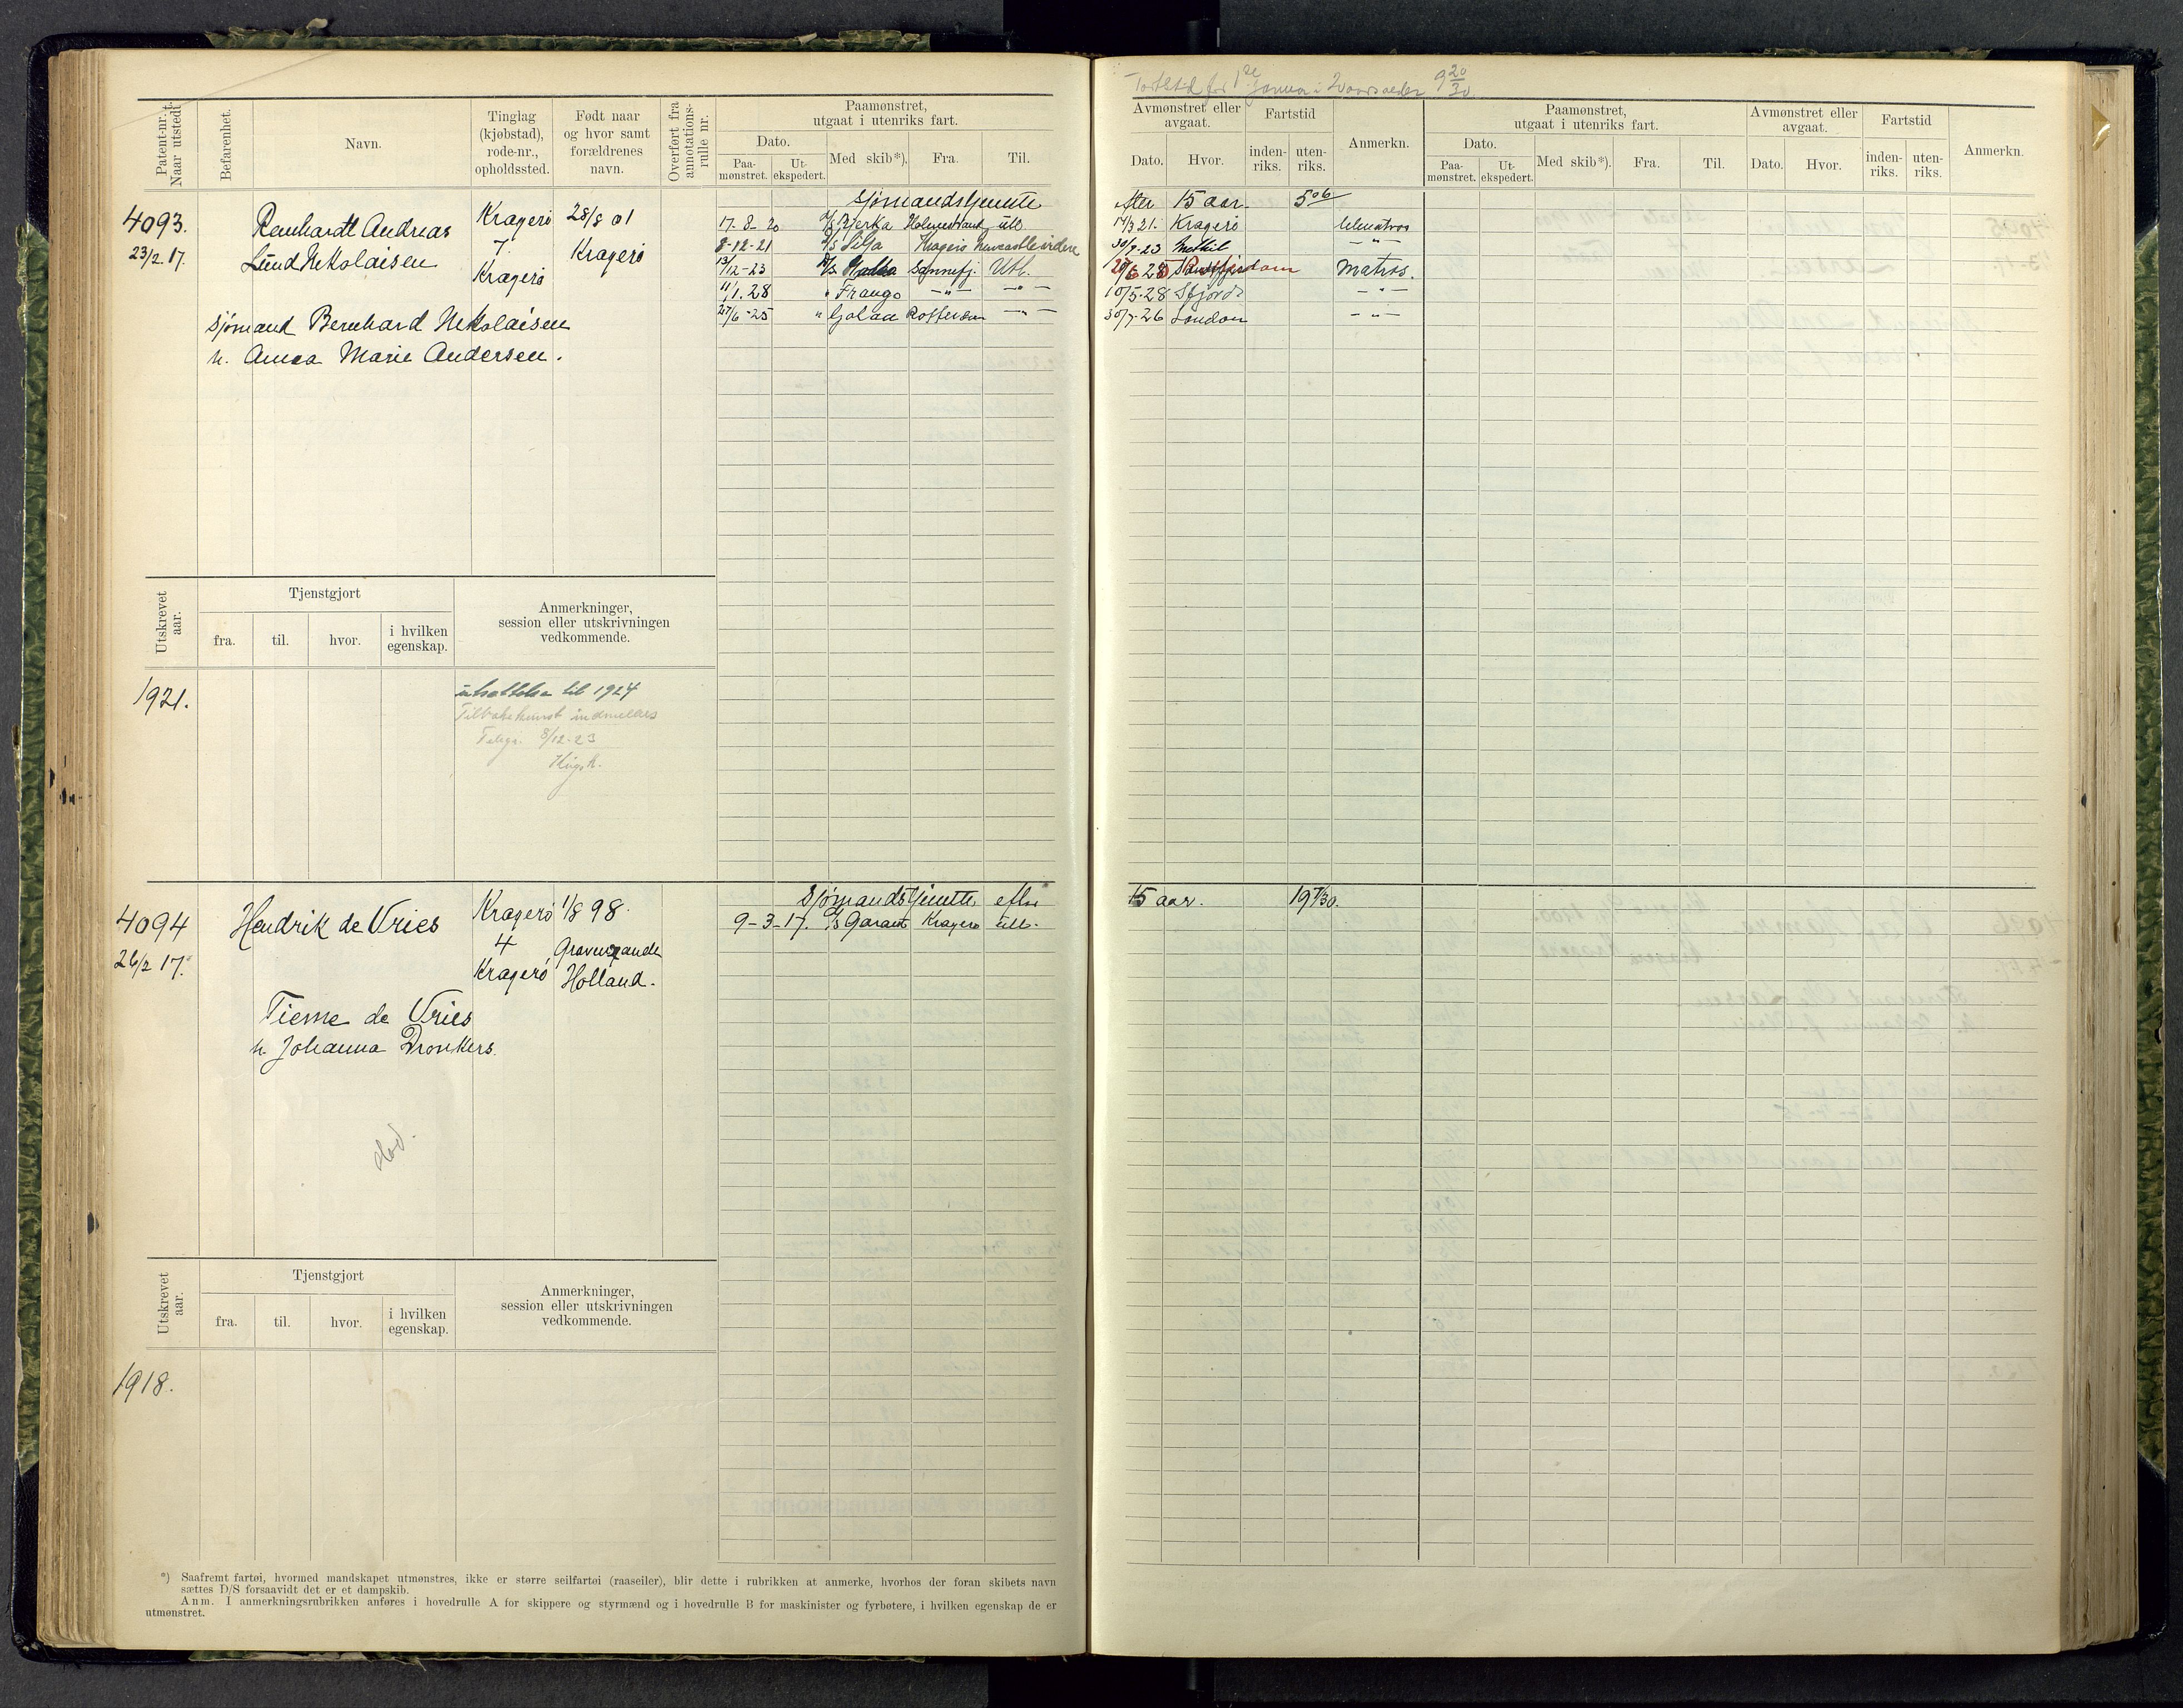 Fartstid for 1ste Januar i 20 aarsalder 9 20/30
Patent-nr. Naar utstedt.
Befarenhet.
Navn.
Tinglag (kjøbstad), rode-nr., opholdssted.
Født naar og hvor samt forældrenes navn.
Overført fra annotations-rulle nr.
Paamønstret, utgaat i utenriks fart.
Dato.
Paa-mønstret.
Ut-ekspedert.
Med skib*).
Fra.
Til.
Avmønstret eller avgaat.
Dato.
Hvor.
Fartstid
inden-riks.
uten-riks.
Anmerkn.
Paamønstret, utgaat i utenriks fart.
Dato.
Paa-mønstret.
Ut-ekspedert.
Med skib*).
Fra.
Til.
Avmønstret eller avgaat.
Dato.
Hvor.
Fartstid
inden-riks.
uten-riks.
Anmerkn.
Sjømandstjeneste efter 15 aar. 5 06
4093. Renhardt Andreas Kragerø 28/8 01
23/2 17. Lund Nikolaisen 7 Kragerø
Kragerø
17-8-20 Bjerka Holmestrand utl. 17/3 21. Kragerø
8-12-21 D/S Silja Kragerø Newcastle videre 30/9-23 Methil — " —
13/12-23 Sannefj. Utl. Matros.
11/1.28 " Frango — " — — " — 10/5-28 Sfjord — " —
27/6-25 " Golaa Rotterdam — " — 30/7-26 London — " —
Sjømand Bernhard Nikolaisen
h. Anna Marie Andersen.
Utskrevet aar.
Tjenstgjort
fra.
til.
hvor.
i hvilken egenskap.
Anmerkninger, session eller utskrivningen vedkommende.
1921. utsættelse til 1924
Tilbakekomst indmeldes
Telegr. 8/12-23
Sjømandstjeneste efter 15 aar. 19 7/30.
4094 Hendrik de Vries Kragerø 1/8 98.
9-3-17. D/S Garant Kragerø utl.
26/2 17. 4 Gravenzande
Kragerø Holland.
Tieme de Vries
h. Johanna Dronkers.
død.
Utskrevet aar.
Tjenstgjort
fra.
til.
hvor.
i hvilken egenskap.
Anmerkninger, session eller utskrivningen vedkommende.
1918.
*) Saafremt fartøi, hvormed mandskapet utmønstres, ikke er større seilfartøi (raaseiler), blir dette i rubrikken at anmerke, hvorhos der foran skibets navn
sættes D/S forsaavidt det er et dampskib.
Anm. I anmerkningsrubrikken anføres i hovedrulle A for skippere og styrmænd og i hovedrulle B for maskinister og fyrbøtere, i hvilken egenskap de er
utmønstret.